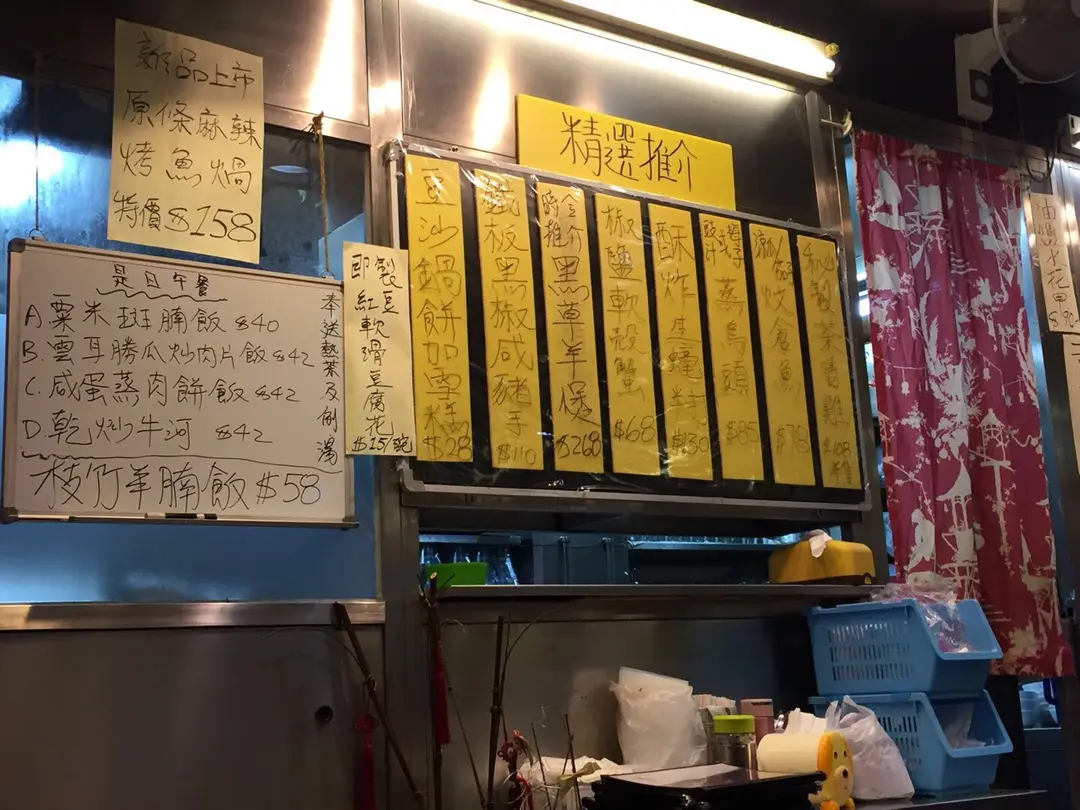 新品上市
原條麻辣
烤魚煱
特價$158
是日午餐
A 粟米班腩飯 $40
B. 雲耳勝瓜炒肉片飯 $42
C. 咸蛋蒸肉餅飯 $42
D. 乾炒牛河 $42
枝竹羊腩飯 $58
本送熱茶及例湯
即製
紅豆軟滑豆腐花
$15/碗
精選推介
豆沙鍋餅加雪糕 $28
鐵板黑椒咸豬手 $110
時令推介黑草羊煲 $268
椒鹽軟殼蟹 $68
酥炸生蠔
蒸烏頭 $85
$78
茶香雞 $108
油鹽水花甲 $90